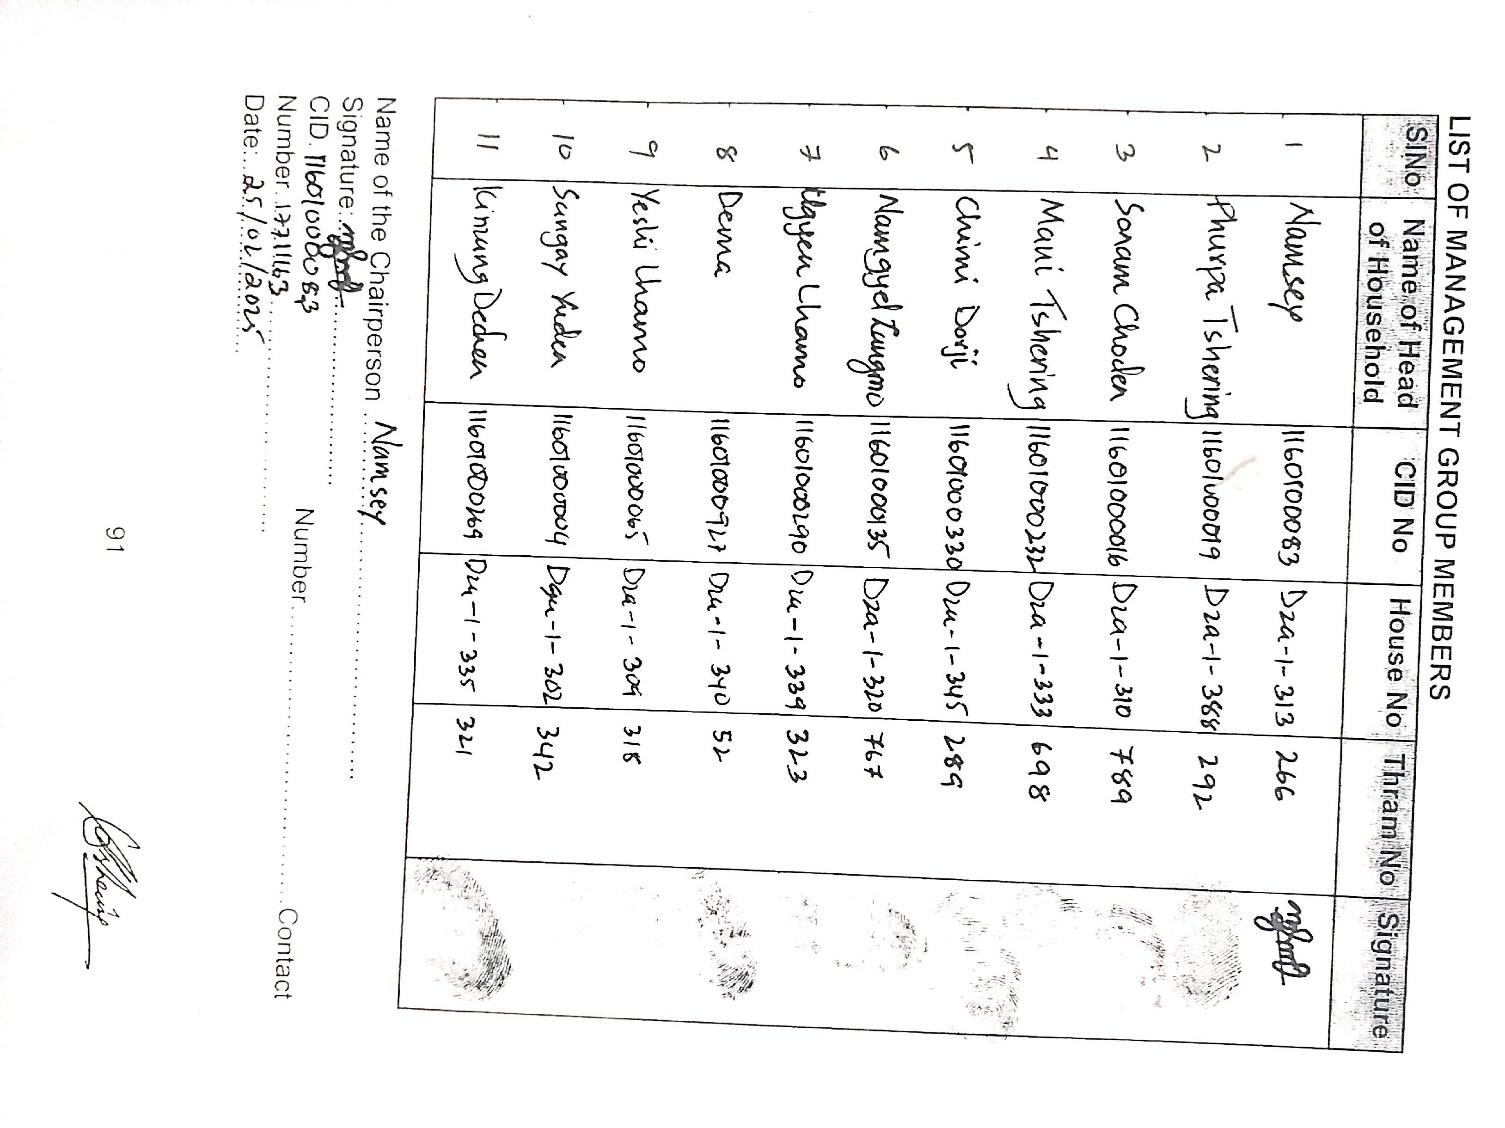 LIST OF MANAGEMENT GROUP MEMBERS
SlNo Name of Head of Household CID No House No Thram No Signature
1 Namsey 11601000083 Dza-1-313 266
2 Phurpa Tshering 11601000019 Dza-1-388 292
3 Sonam Choden 11601000016 Dza-1-310 789
4 Mani Tshering 11601000232 Dza-1-333 698
5 Chimi Dorji 11601000330 Dza-1-345 289
6 Namgyel Zangmo 11601000135 Dza-1-320 767
7 Ugyen Lhamo 11601000290 Dza-1-339 323
8 Dema 11601000927 Dza-1-340 52
9 Yeshi Lhamo 11601000065 Dza-1-309 318
10 Sangay Yuden 11601000004 302 342
11 Kinzang Dechen 11601000269 Dza-1-335 321
Name of the Chairperson Namsey
Signature:
CID. 11601000083 Number Contact
Number. 17711163
Date: 25/02/2025
91